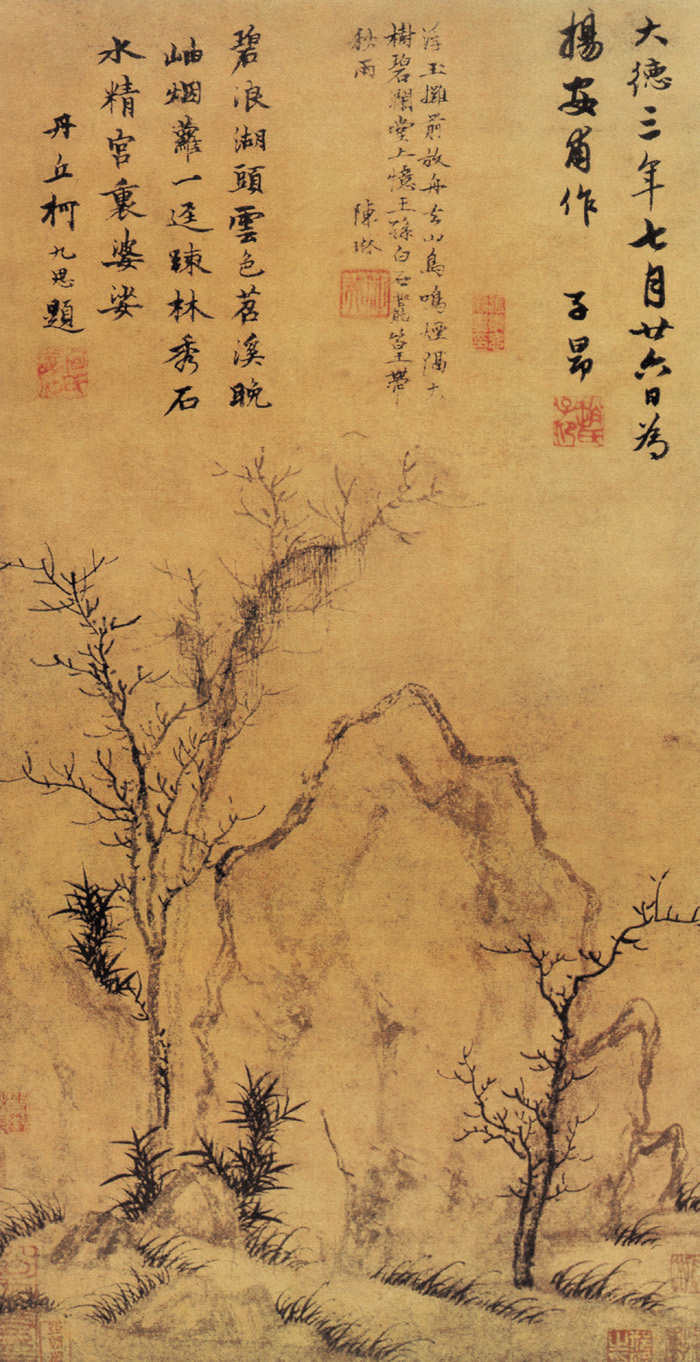 大德三年七月廿六日為
楊安甫作 子昂
趙氏子昂
浮玉灘前放舟去山鳥鳴煙隔大
樹碧瀾堂上憶王孫白石叢篁帶
秋雨 陳琳
碧浪湖頭雲色苕溪晚
岫烟蘿一迳踈林秀石
水精宮裏婆娑
丹丘柯九思題